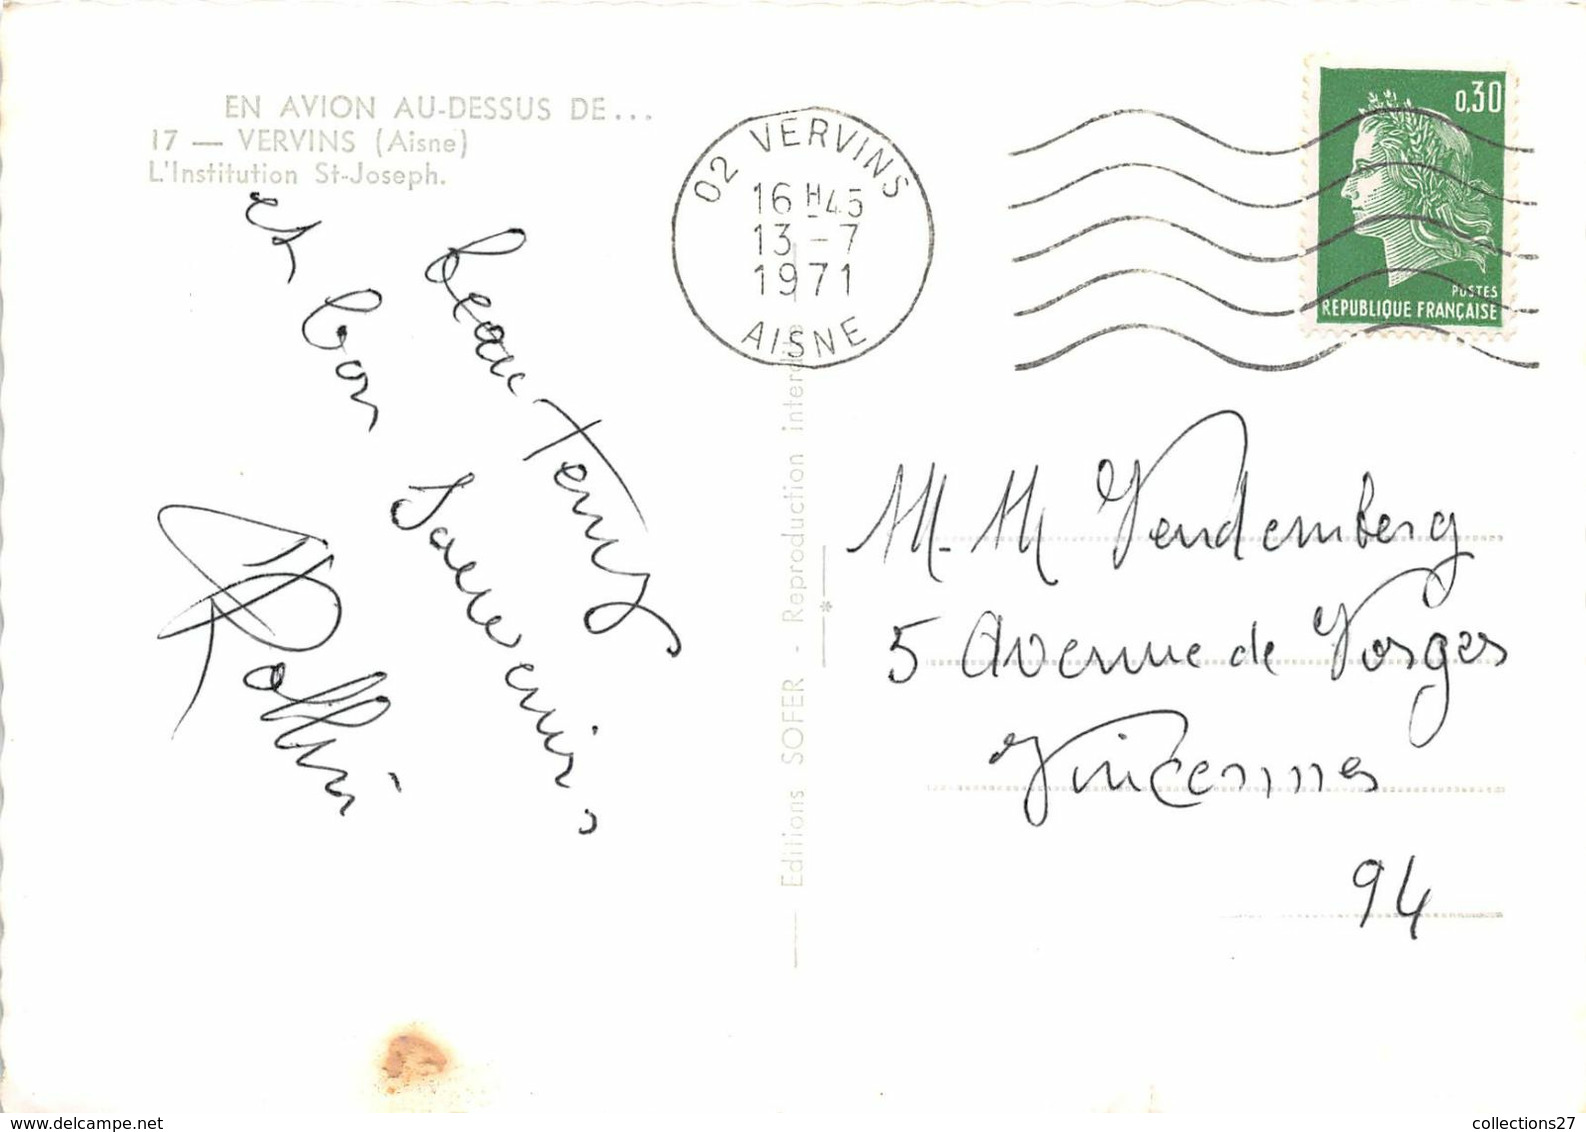 EN AVION AU-DESSUS DE...
17 — VERVINS (Aisne)
L'Institution St-Joseph.
Beau Temps
et bon souvenir,
02 VERVINS
16 H45
13 - 7
1971
AISNE
0,30
POSTES
REPUBLIQUE FRANÇAISE
Editions SOFER - Reproduction interdite
M. M Vendemberg
5 Avenue de Vosges
Vincennes
94
collections27